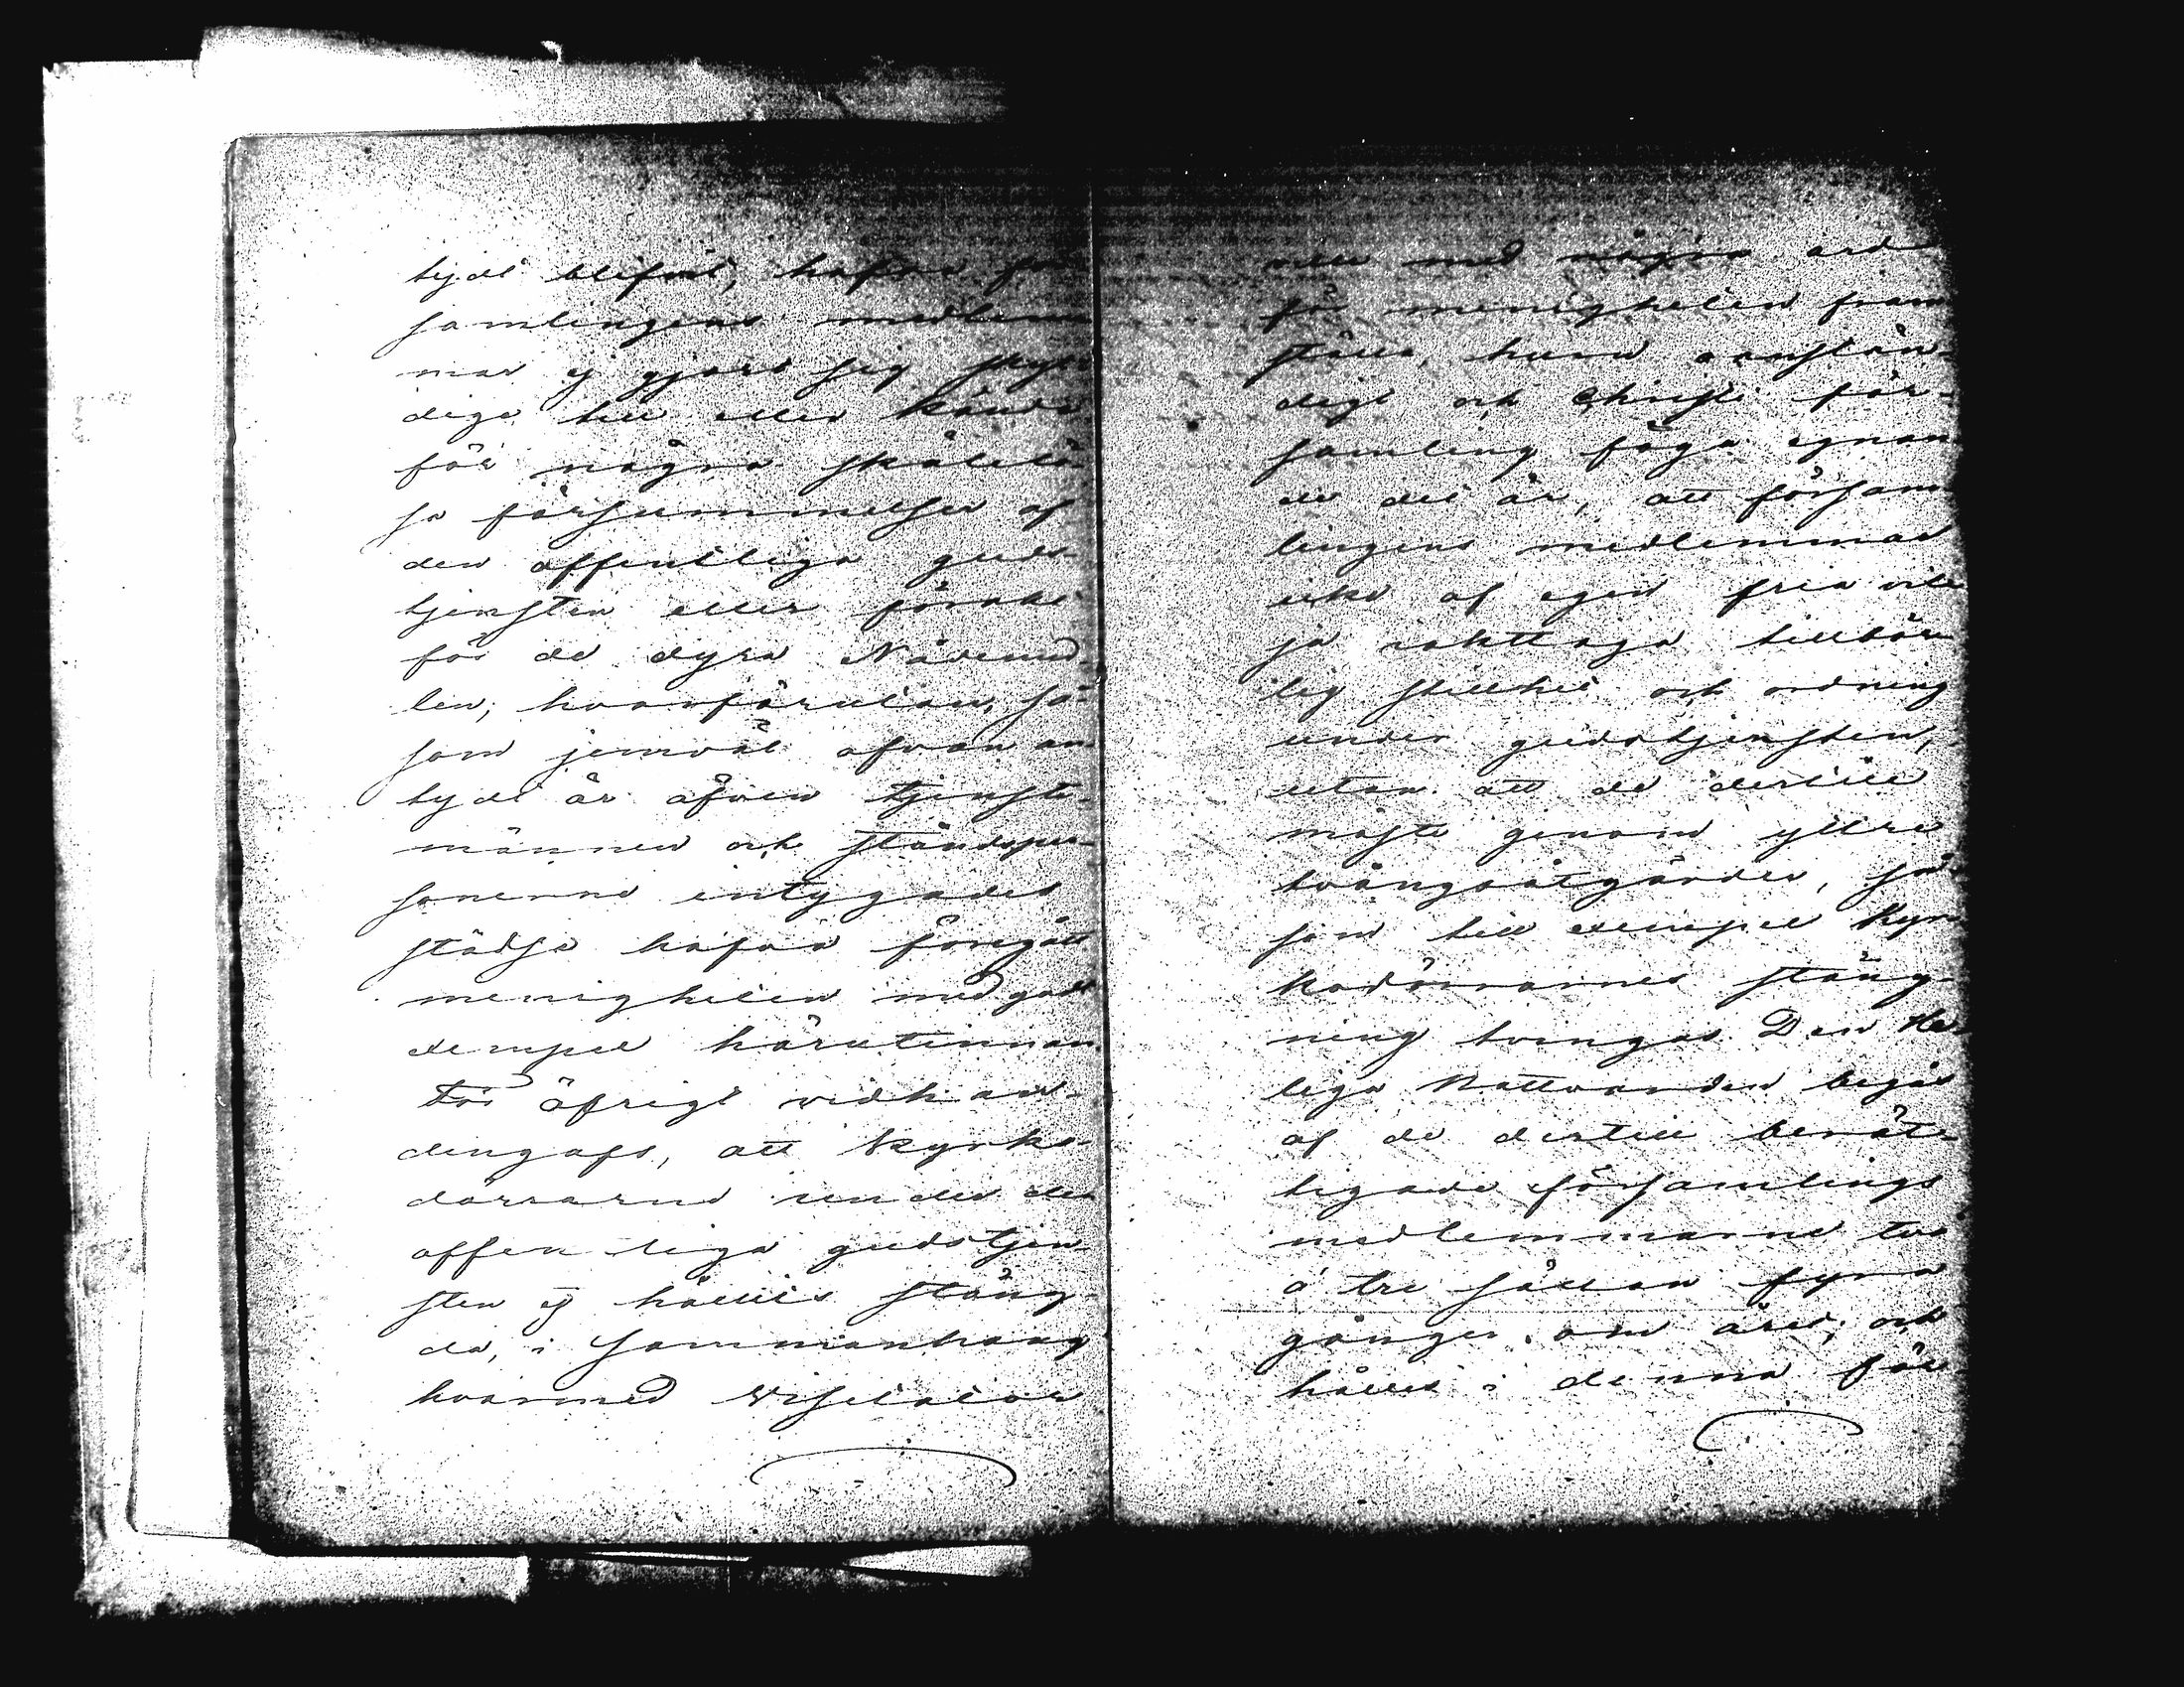 tydt blifvit, hafva för
samlingens medlem
mar ej gjort sig skyl
diga till eller kända
för några skälelö-
sa försummelser af
den offentliga guds-
tjensten eller förakt
för de dyra Nådemed-
len; hvarförutan, så-
som jemväl ofvan an-
tydt är äfven tjenste-
männen och ståndsper-
sonerne intygades
städse hafva föregått
menigheten med godt
exempel härutinnan
För öfrigt vidhan-
dengafs, att kyrko-
dörrarne under den
offentliga gudstjen-
sten ej hållits stäng-
da, i sammanhang
hvarmed Visitator
ville med några ord
för menigheten fram
ställa, huru anstän-
digt och Christi för-
samling föga egnan
de det är, att försam
lingens medlemmar
icke af egen fria vil
ja iakttaga tillbör
lig stillhet och ordning
under gudstjensten,
utan att de dertill
måste genom yttre
tvångsåtgärder, så-
som till exempel kyr
kodörrarnes stäng-
ning tvingas. Den He-
liga Nattvarden begås
af de dertill berät-
tigade församlings
medlemmarne två
á tre sällan fyra
gånger om året; och
hålles i denna för